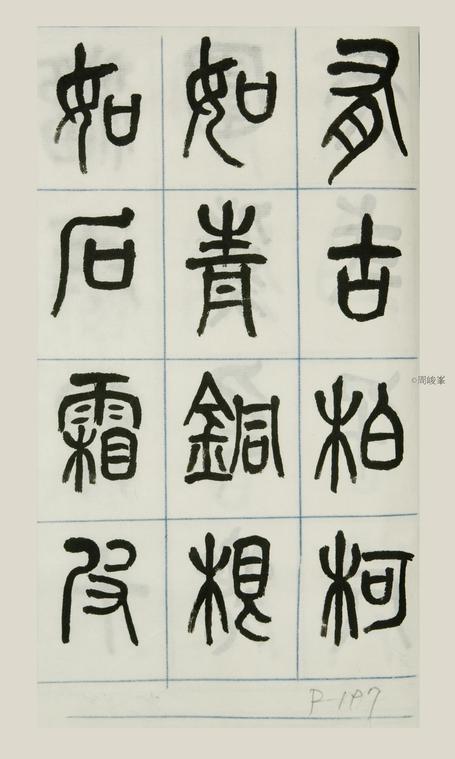 有古柏柯
如青銅根
如石霜皮
©周峻峯